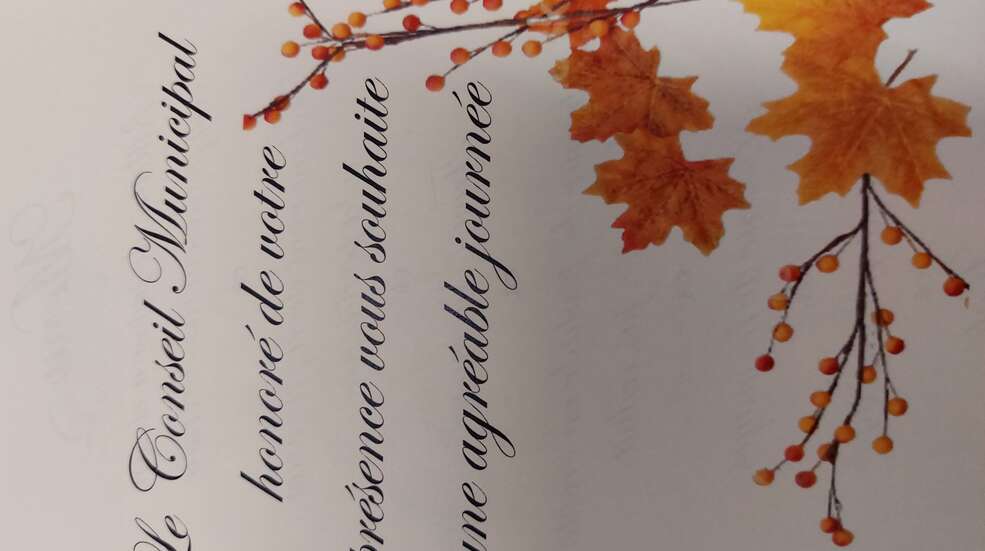 Le Conseil Municipal
honoré de votre
présence vous souhaite
une agréable journée